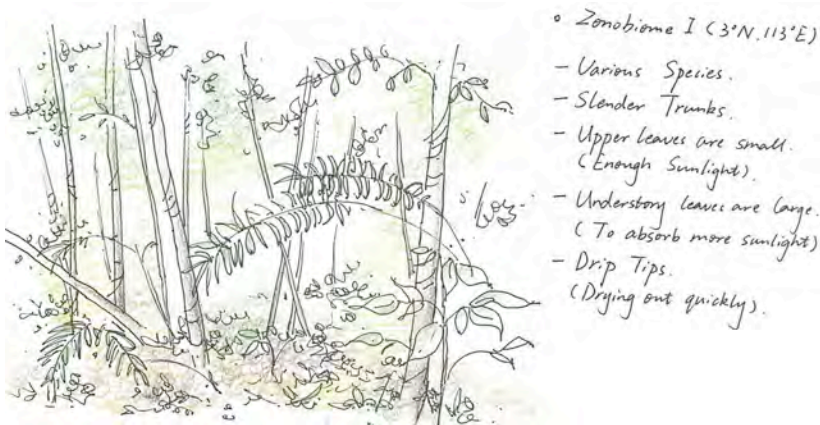 • Zonobiome I (3°N, 113°E)
- Various Species.
- Slender Trunks.
- Upper leaves are small.
(Enough Sunlight).
- Understory leaves are large.
(To absorb more sunlight)
- Drip Tips.
(Drying out quickly).